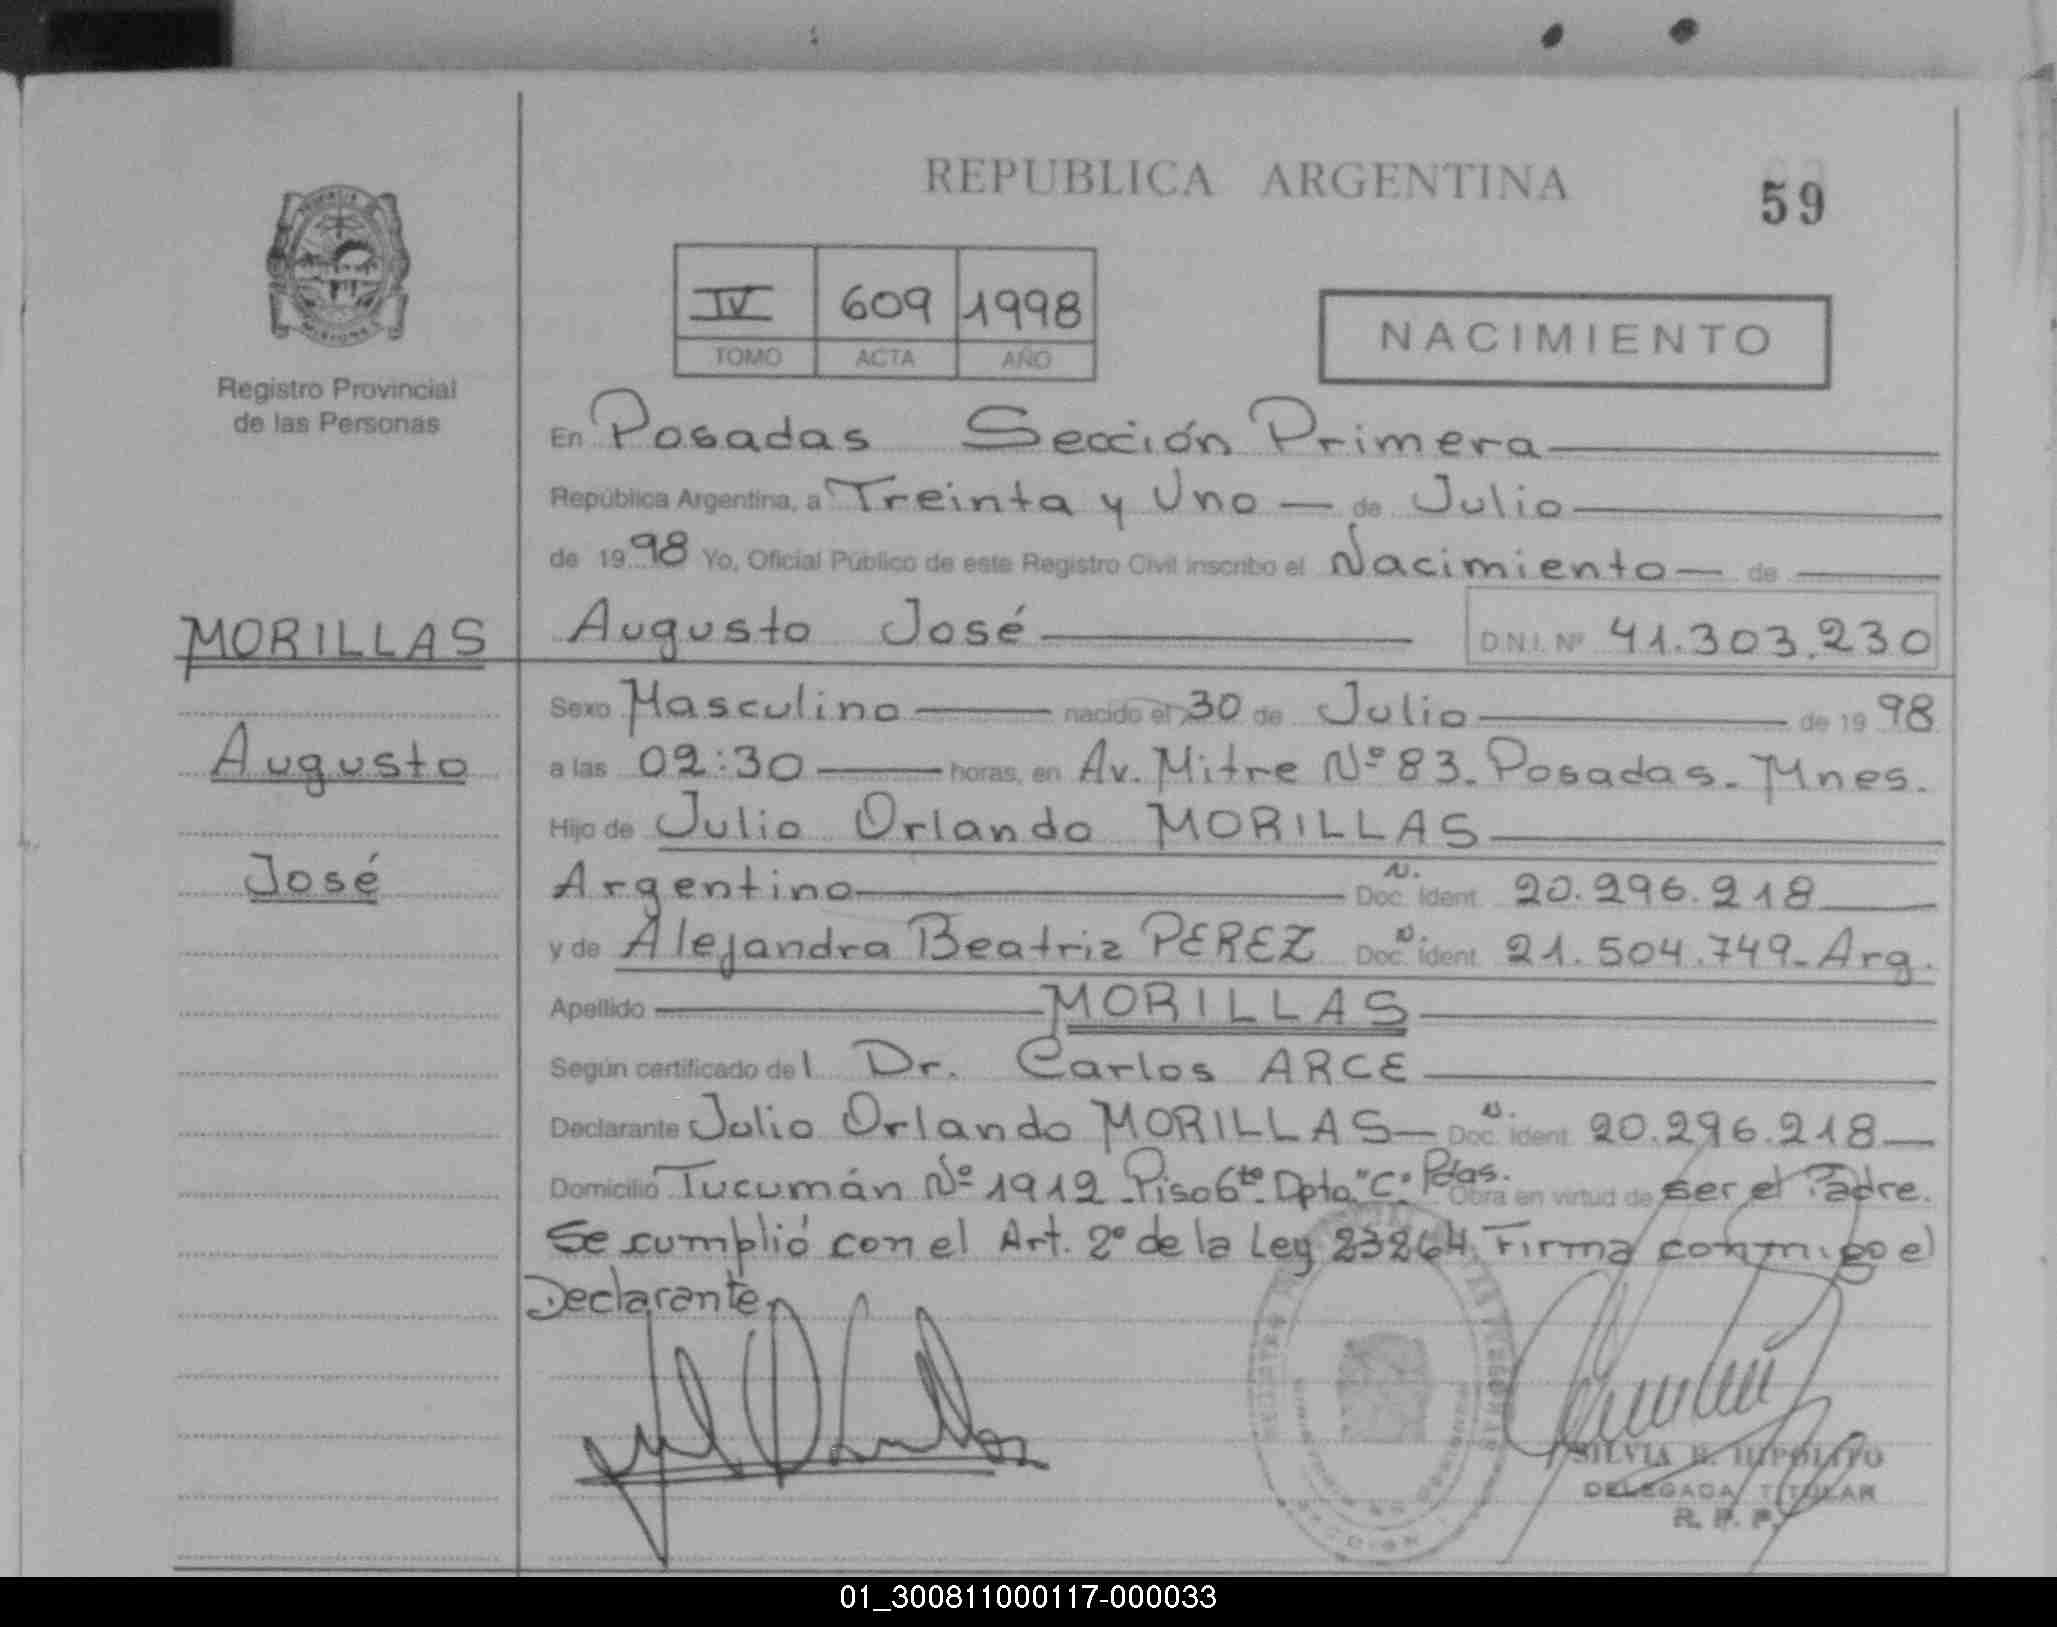 REPUBLICA ARGENTINA
59
IV 609 1998
TOMO ACTA AÑO
NACIMIENTO
Registro Provincial
de las Personas
En Posadas Sección Primera
República Argentina, a Treinta y Uno — de Julio
de 1998 Yo, Oficial Público de este Registro Civil inscribo el Nacimiento — de
MORILLAS
Augusto José D.N.I. Nº 41.303.230
Sexo Masculino nacido el 30 de Julio de 1998
Augusto
a las 02:30 horas, en Av. Mitre Nº 83. Posadas. Mnes.
Hijo de Julio Orlando MORILLAS
José
Argentino N. Doc. Ident. 20.296.218
y de Alejandra Beatriz PEREZ N. Doc. Ident. 21.504.749 - Arg.
Apellido MORILLAS
Según certificado del Dr. Carlos ARCE
Declarante Julio Orlando MORILLAS — N. Doc. Ident. 20.296.218
Domicilio Tucumán Nº 1912 Piso 6to Dpto "C" Pdas. Obra en virtud de ser el Padre.
Se cumplió con el Art. 2º de la Ley 23264. Firma conmigo el
Declarante
SILVIA R. HIPOLITO
DELEGADA TITULAR
R. P. P.
01_300811000117-000033